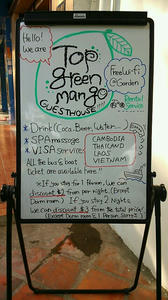 Hello!
We are
Top
green
mango
GUESTHOUSE!!!
Free Wi-fi
@Garden
Rental
Service
* Drink (Coca, Beer, Water...
* SPA massage
* VISA services
CAMBODIA
THAILAND
LAOS
VIETNAM
ALL the bus & boat
ticket are available here!"
* If you stay for 1 Person, We can
discount $1 from per night. (Except
Dorm room) If you stay 2 Nights,
we can discount $3 from the total price
(Except Dorm room & 1 Person, Sorry!)